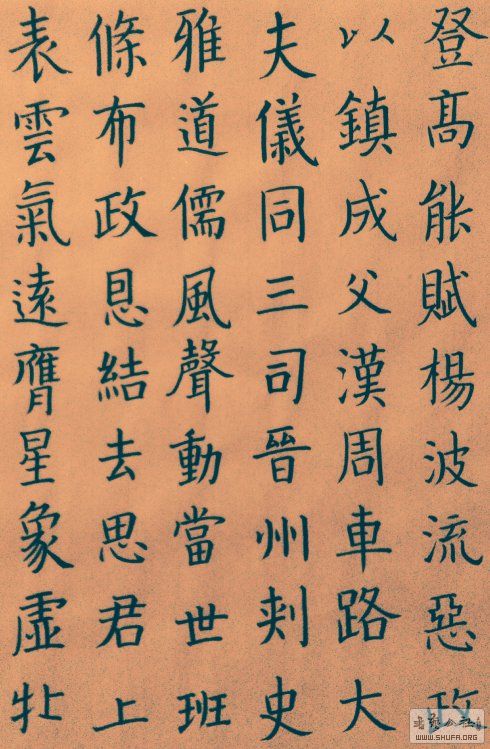 登高能賦楊波流惡
以鎮成父漢周車路大
夫儀同三司晉州刾史
雅道儒風聲動當世班
條布政恩結去思君上
表雲氣遠膺星象虛牝
书艺公社
WWW.SHUFA.ORG